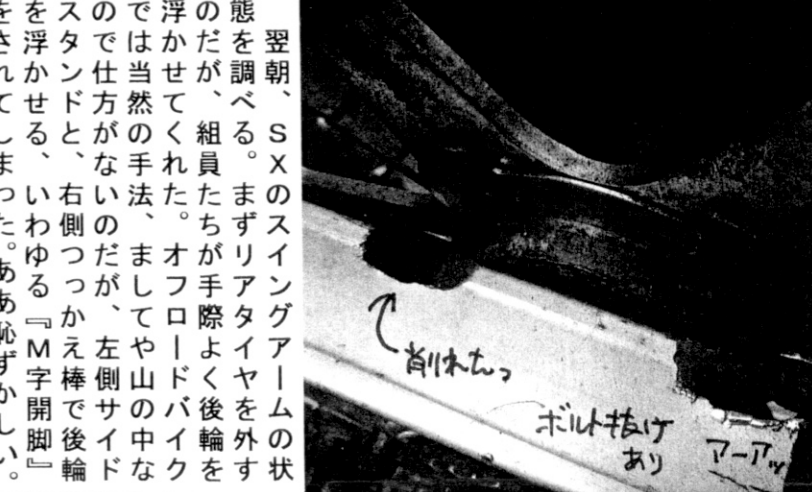 翌朝、SXのスイングアームの状
態を調べる。まずリアタイヤを外す
のだが、組員たちが手際よく後輪を
浮かせてくれた。オフロードバイク
では当然の手法、ましてや山の中な
ので仕方がないのだが、左側サイド
スタンドと、右側つっかえ棒で後輪
を浮かせる、いわゆる『M字開脚』
をされてしまった。ああ恥ずかしい。
削れたっ
ボルト抜け
あり
アーアッ